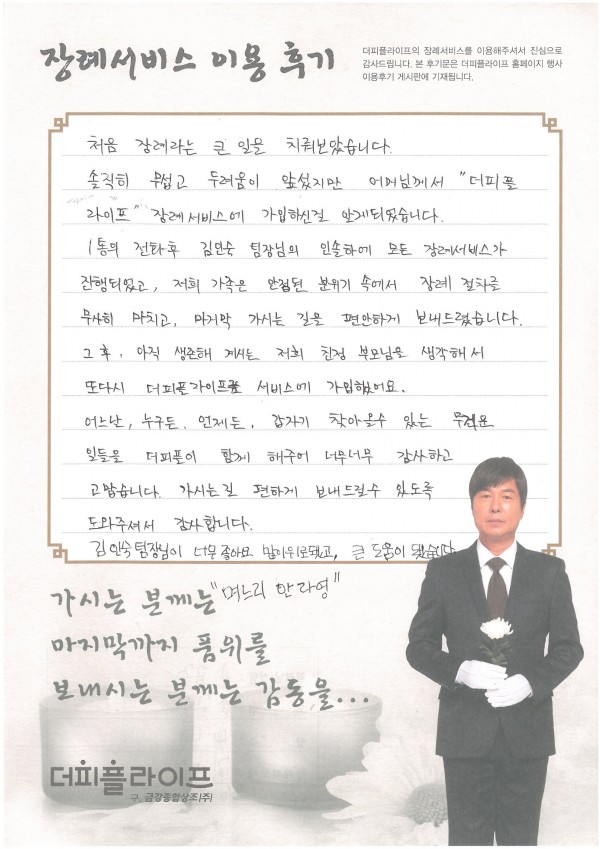 장례서비스 이용 후기
더피플라이프의 장례서비스를 이용해주셔서 진심으로
감사드립니다. 본 후기문은 더피플라이프 홈페이지 행사
이용후기 게시판에 기재됩니다.
처음 장례라는 큰 일을 치뤄보았습니다.
솔직히 무섭고 두려움이 앞섰지만 어머님께서 "더피플
라이프" 장례서비스에 가입하신걸 알게되었습니다.
1통의 전화후 김인숙 팀장님의 인솔하에 모든 장례서비스가
진행되었고, 저희 가족은 안정된 분위기 속에서 장례 절차를
무사히 마치고, 마지막 가시는 길을 편안하게 보내드렸습니다.
그 후, 아직 생존해 계시는 저희 친정 부모님을 생각해서
또다시 더피플라이프 서비스에 가입했어요.
어느날, 누구든, 언제든, 갑자기 찾아올수 있는 무거운
일들을 더피플이 함께 해주어 너무너무 감사하고
고맙습니다. 가시는길 편하게 보내드릴수 있도록
도와주셔서 감사합니다.
김인숙팀장님이 너무 좋아요 맘이위로됐고, 큰 도움이 됐습니다
가시는 분께는 "며느리 안라영"
마지막까지 품위를
보내시는 분께는 감동을...
더피플라이프
구. 금강종합상조(주)